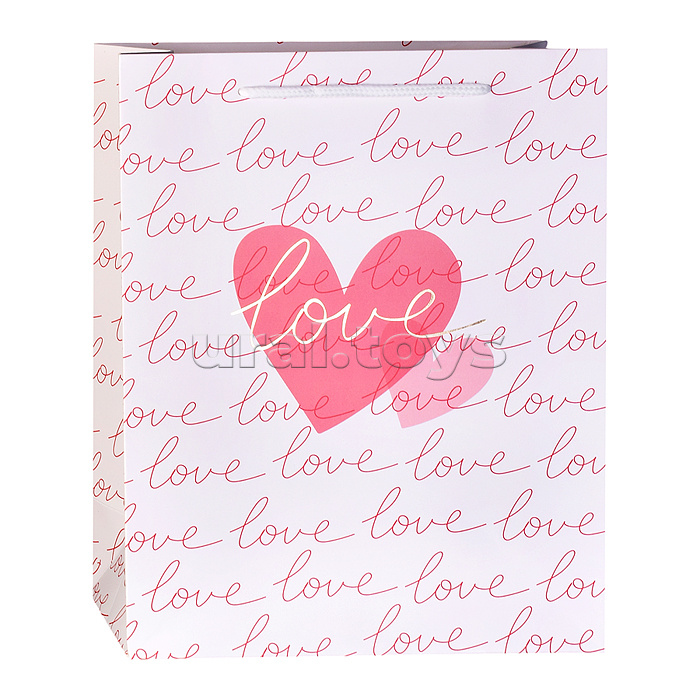 love love love love
love love love love
love love love love
love love love love
love
love love love love
ural.toys
love love love love
love love love love
love love love love
love love love love
love love love love
love love love love
love love love love